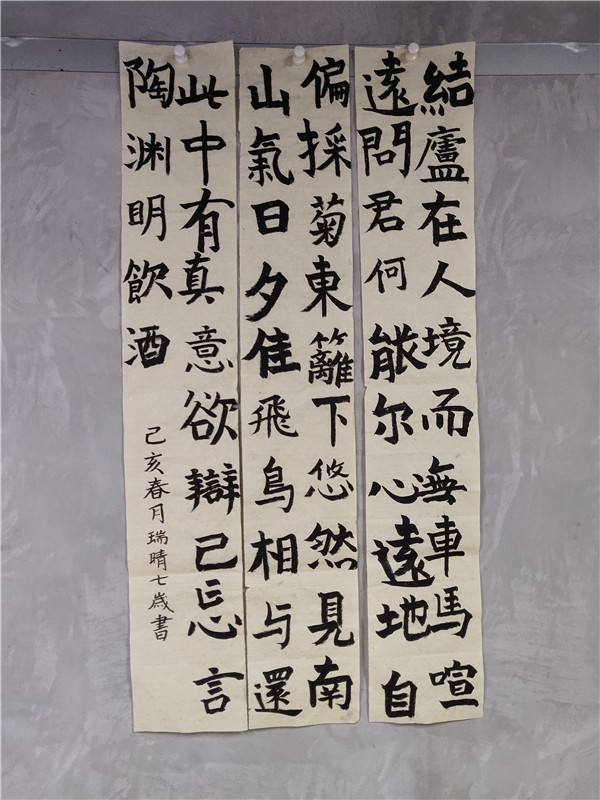 結廬在人境而無車馬喧
遠問君何能尔心遠地自
偏採菊東籬下悠然見南
山氣日夕佳飛鳥相与還
此中有真意欲辯己忘言
陶渊明飲酒
己亥春月瑞晴七歲書